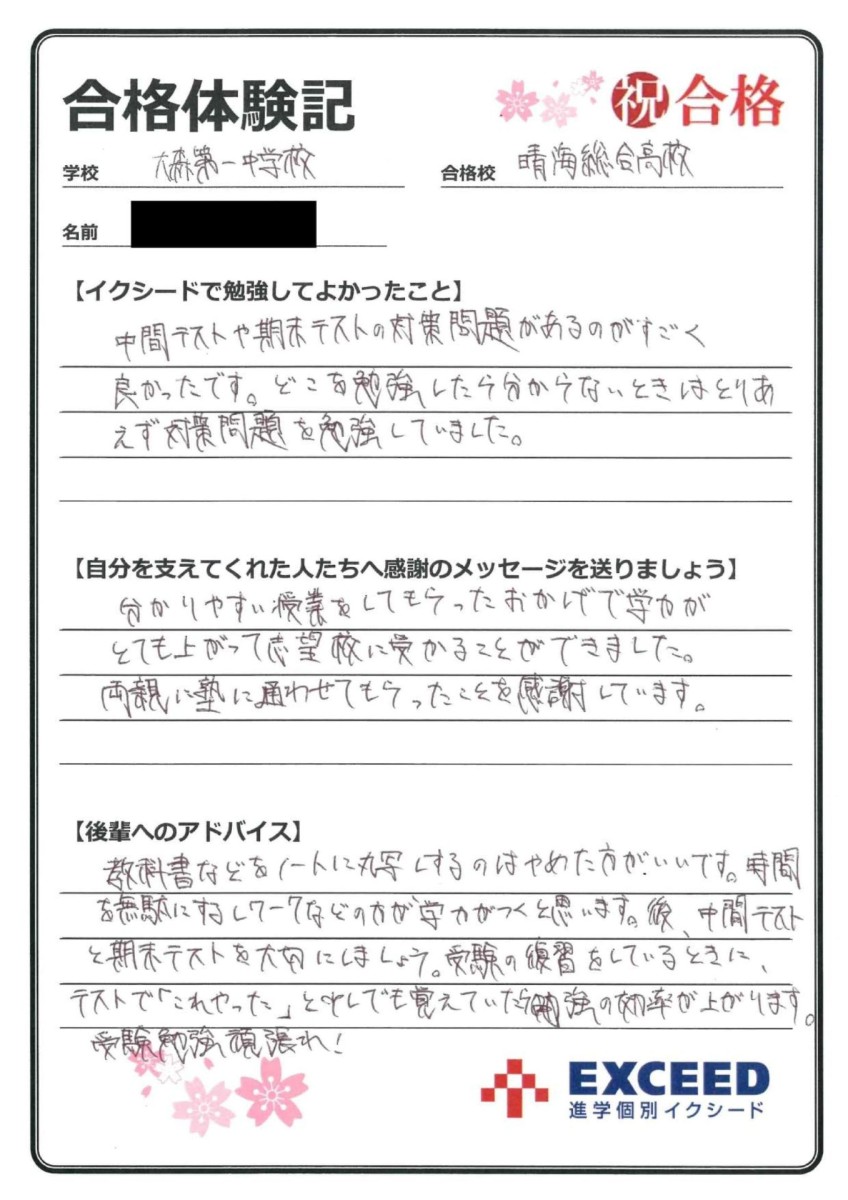 合格体験記
祝合格
学校 大森第一中学校
合格校 晴海総合高校
名前
【イクシードで勉強してよかったこと】
中間テストや期末テストの対策問題があるのがすごく
良かったです。どこを勉強したら分からないときはとりあ
えず対策問題を勉強していました。
【自分を支えてくれた人たちへ感謝のメッセージを送りましょう】
分かりやすい授業をしてもらったおかげで学力が
とても上がって志望校に受かることができました。
両親に塾に通わせてもらったことを感謝しています。
【後輩へのアドバイス】
教科書などをノートに丸写しするのはやめた方がいいです。時間
を無駄にするしワークなどの方が学力がつくと思います。後、中間テスト
と期末テストを大切にしましょう。受験の復習をしているときに、
テストで「これやった」と少しでも覚えていたら勉強の効率が上がります。
受験勉強頑張れ!
EXCEED
進学個別イクシード